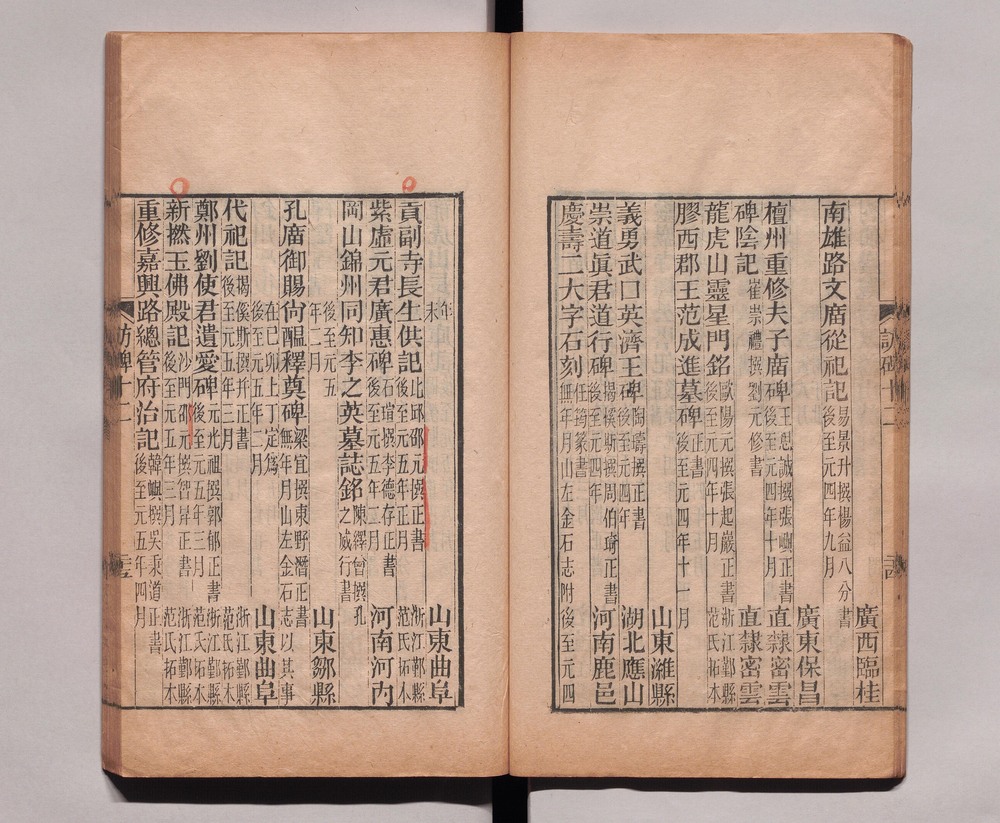 廣西臨桂
南雄路文庿從祀記
易景升撰楊益八分書
後至元四年九月
廣東保昌
檀州重修夫子庿碑
王思誠撰張㠖正書
後至元四年十月
直隸密雲
碑陰記
崔崇禮撰劉元修書
直隸密雲
龍虎山靈星門銘
歐陽元撰張起巖正書
後至元四年十月
浙江鄞縣
范氏拓本
膠西郡王范成進墓碑
正書
後至元四年十一月
山東濰縣
義勇武口英濟王碑
陶鑄撰正書
後至元四年
湖北應山
崇道眞君道行碑
揭傒斯撰周伯琦正書
後至元四年
河南鹿邑
慶壽二大字石刻
篆書
無年月山左金石志附後至元四
訪碑十二
年
末
山東曲阜
貢副寺長生供記
比邱邵元撰正書
後至元五年正月
浙江鄞縣
范氏拓本
紫虛元君廣惠碑
石瑄撰李德存正書
後至元五年二月
河南河內
岡山錦州同知李之英墓誌銘
陳繹曾撰孔
之威行書
後至元五
年二月
山東鄒縣
孔庿御賜尙醞釋奠碑
梁宜撰東野潛正書
無年月山左金石志以其事
在己卯上丁定爲
後至元五年二月
山東曲阜
代祀記
揭傒斯撰并正書
後至元五年三月
浙江鄞縣
范氏拓本
鄭州劉使君遺愛碑
元光祖撰郭郁正書
後至元五年三月
浙江鄞縣
范氏拓本
新撚玉佛殿記
沙門邵元撰智昇正書
後至元五年三月
浙江鄞縣
范氏拓本
重修嘉興路總管府治記
韓㠖撰吳秉道正書
後至元五年四月
訪碑十二